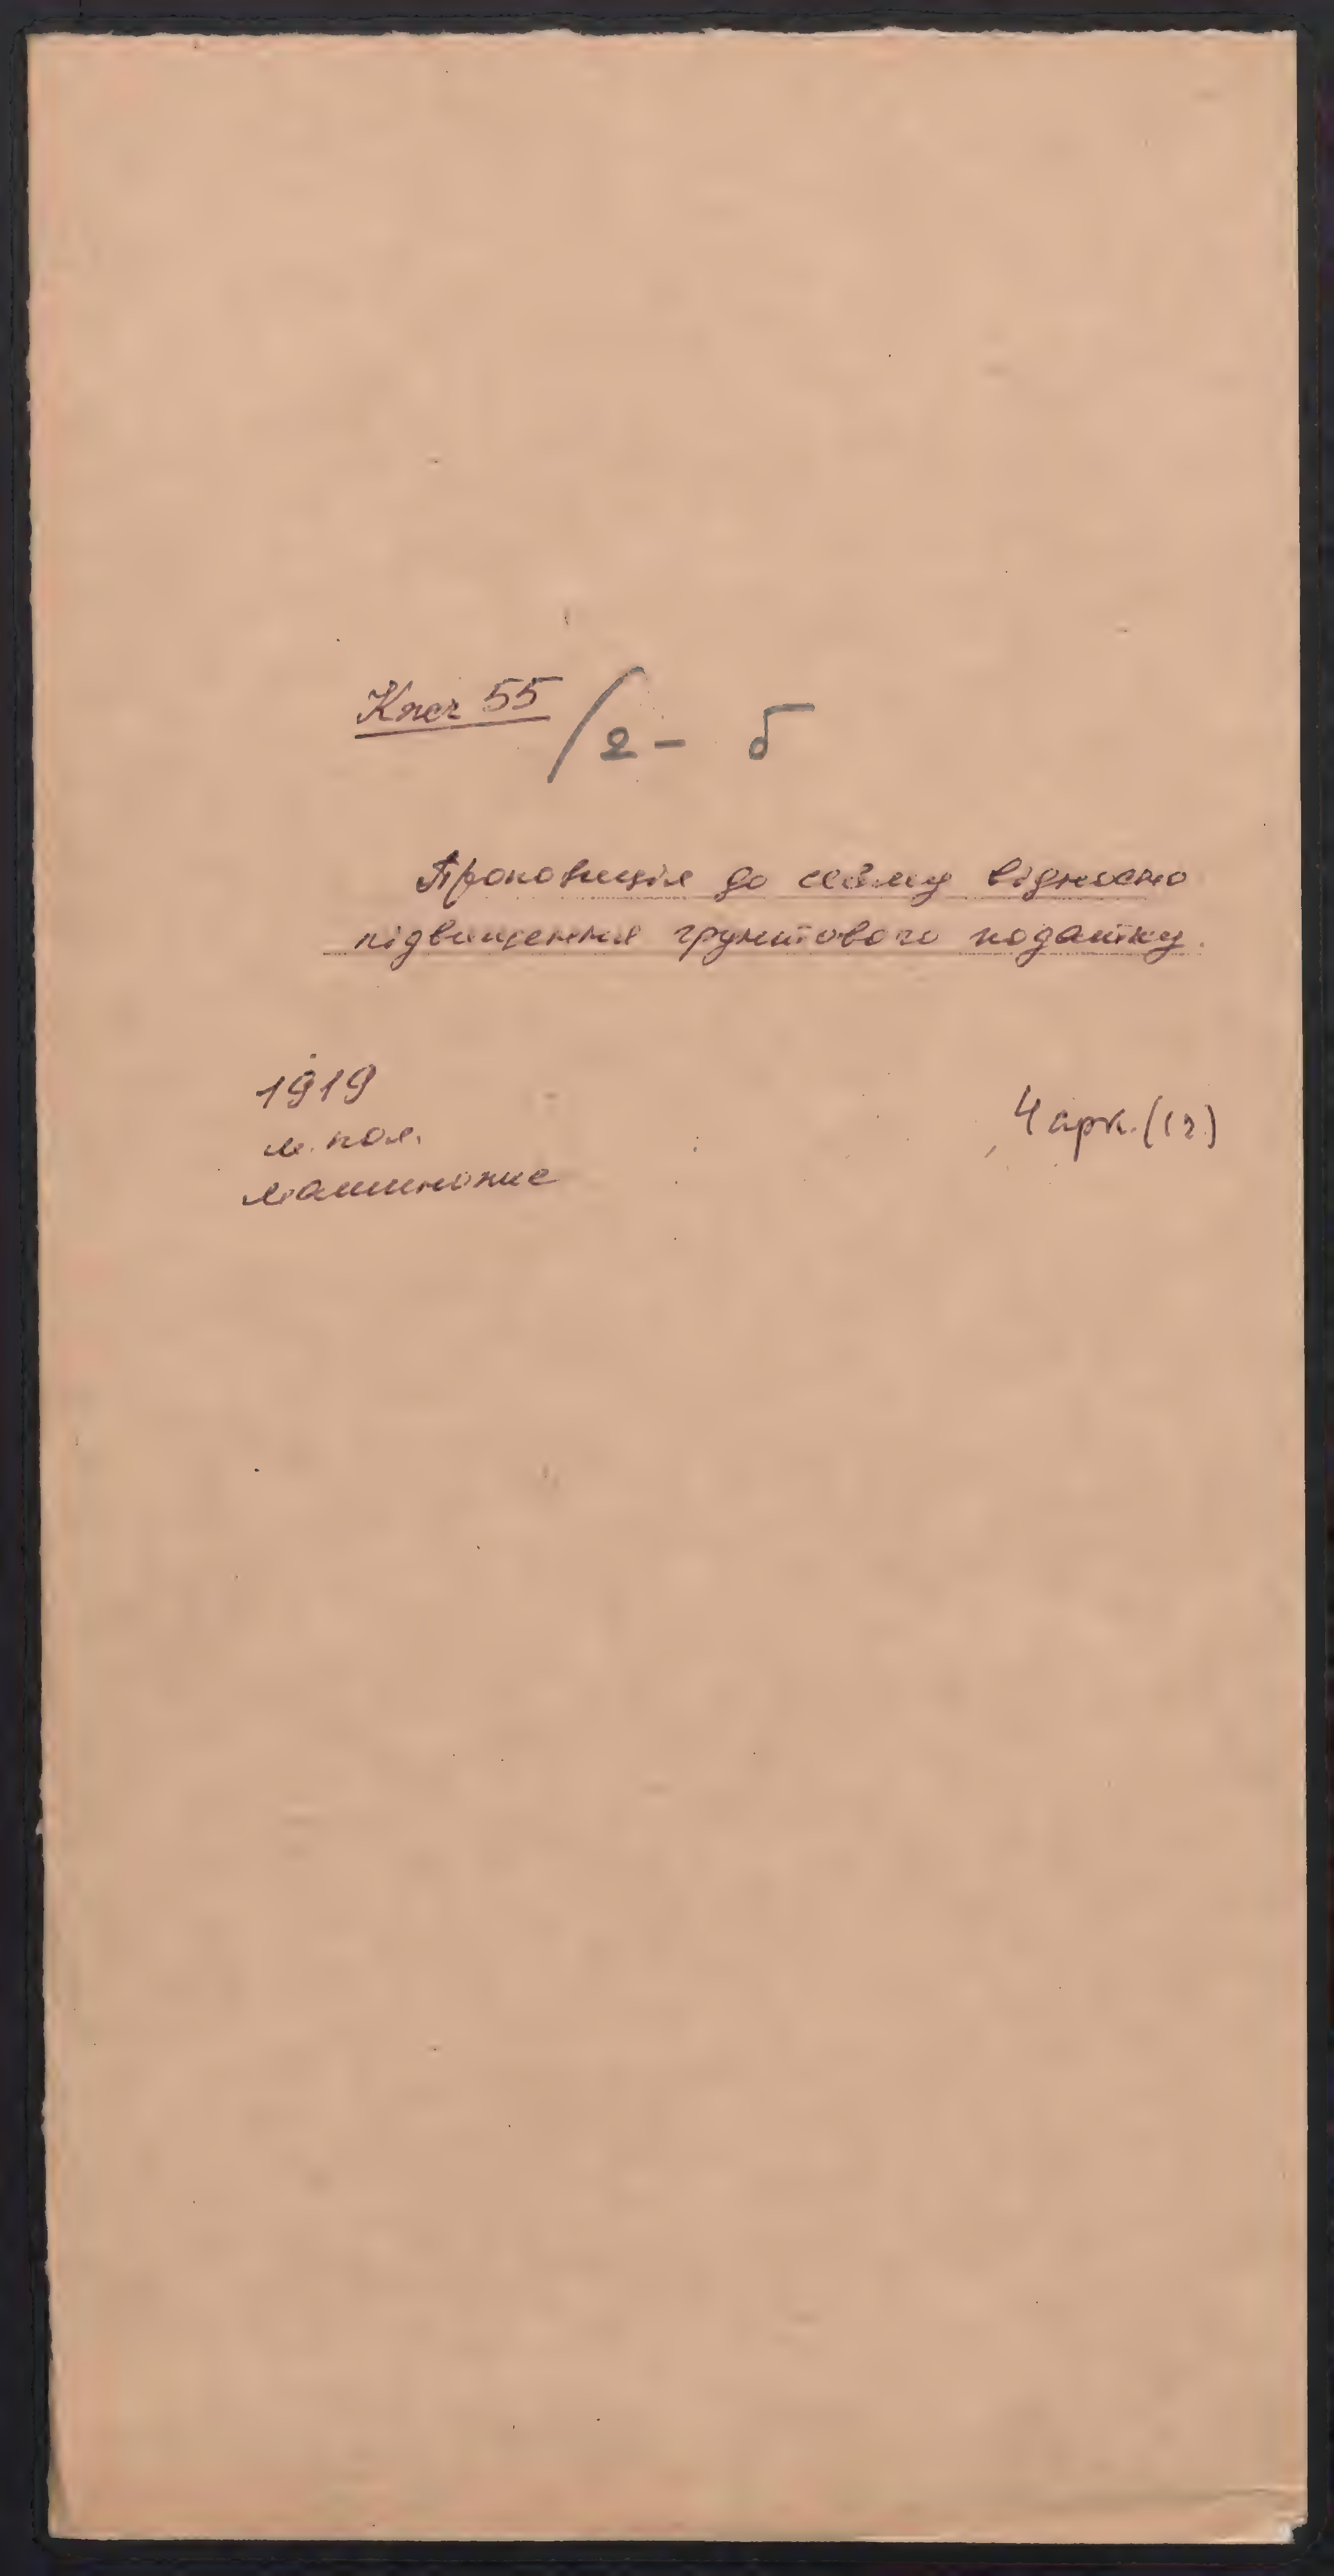 Кяст 55 / 2 - б
Пропозиція до сейму відносно
підвищення грунтового податку.
1919
м. пол.
машинопис
4 арк. (12)